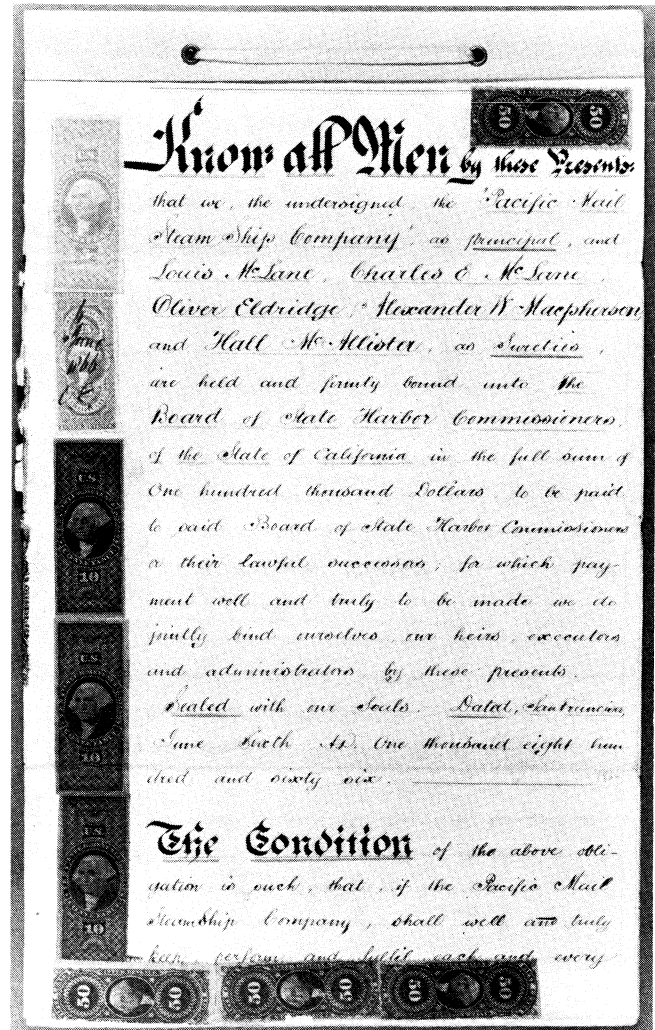 Know all Men by these Presents:
that we, the undersigned, the "Pacific Mail
Steam Ship Company", as principal, and
Louis McLane, Charles E McLane,
Oliver Eldridge, Alexander W Macpherson,
and Hall McAllister, as Sureties,
are held and firmly bound unto the
Board of State Harbor Commissioners,
of the State of California in the full sum of
One hundred thousand Dollars, to be paid
to said Board of State Harbor Commissioners
or their lawful successors, for which pay-
ment well and truly to be made we do
jointly bind ourselves, our heirs, executors
and administrators by these presents.
Sealed with our Seals. Dated, San Francisco,
June Sixth A.D. One thousand eight hun
dred and sixty six.
The Condition of the above obli-
gation is such, that, if the Pacific Mail
Steamship Company, shall well and truly
keep, perform and fulfil each and every
50 50
6
June
1866
US
10
US
10
US
10
50 50
50 50
50 50